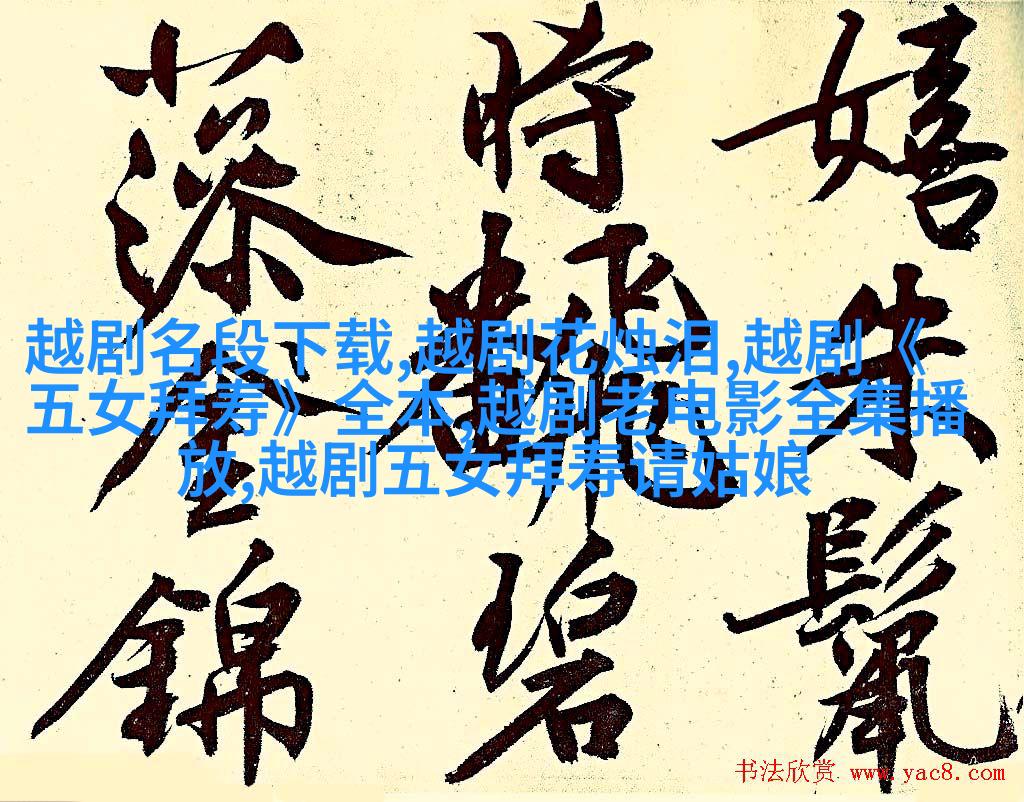 嬉朱鬣
時飜碧
藻金錦
越剧名段下载,越剧花烛泪,越剧《
五女拜寿》全本,越剧老电影全集播
放,越剧五女拜寿请姑娘
书法欣赏 www.yac8.com